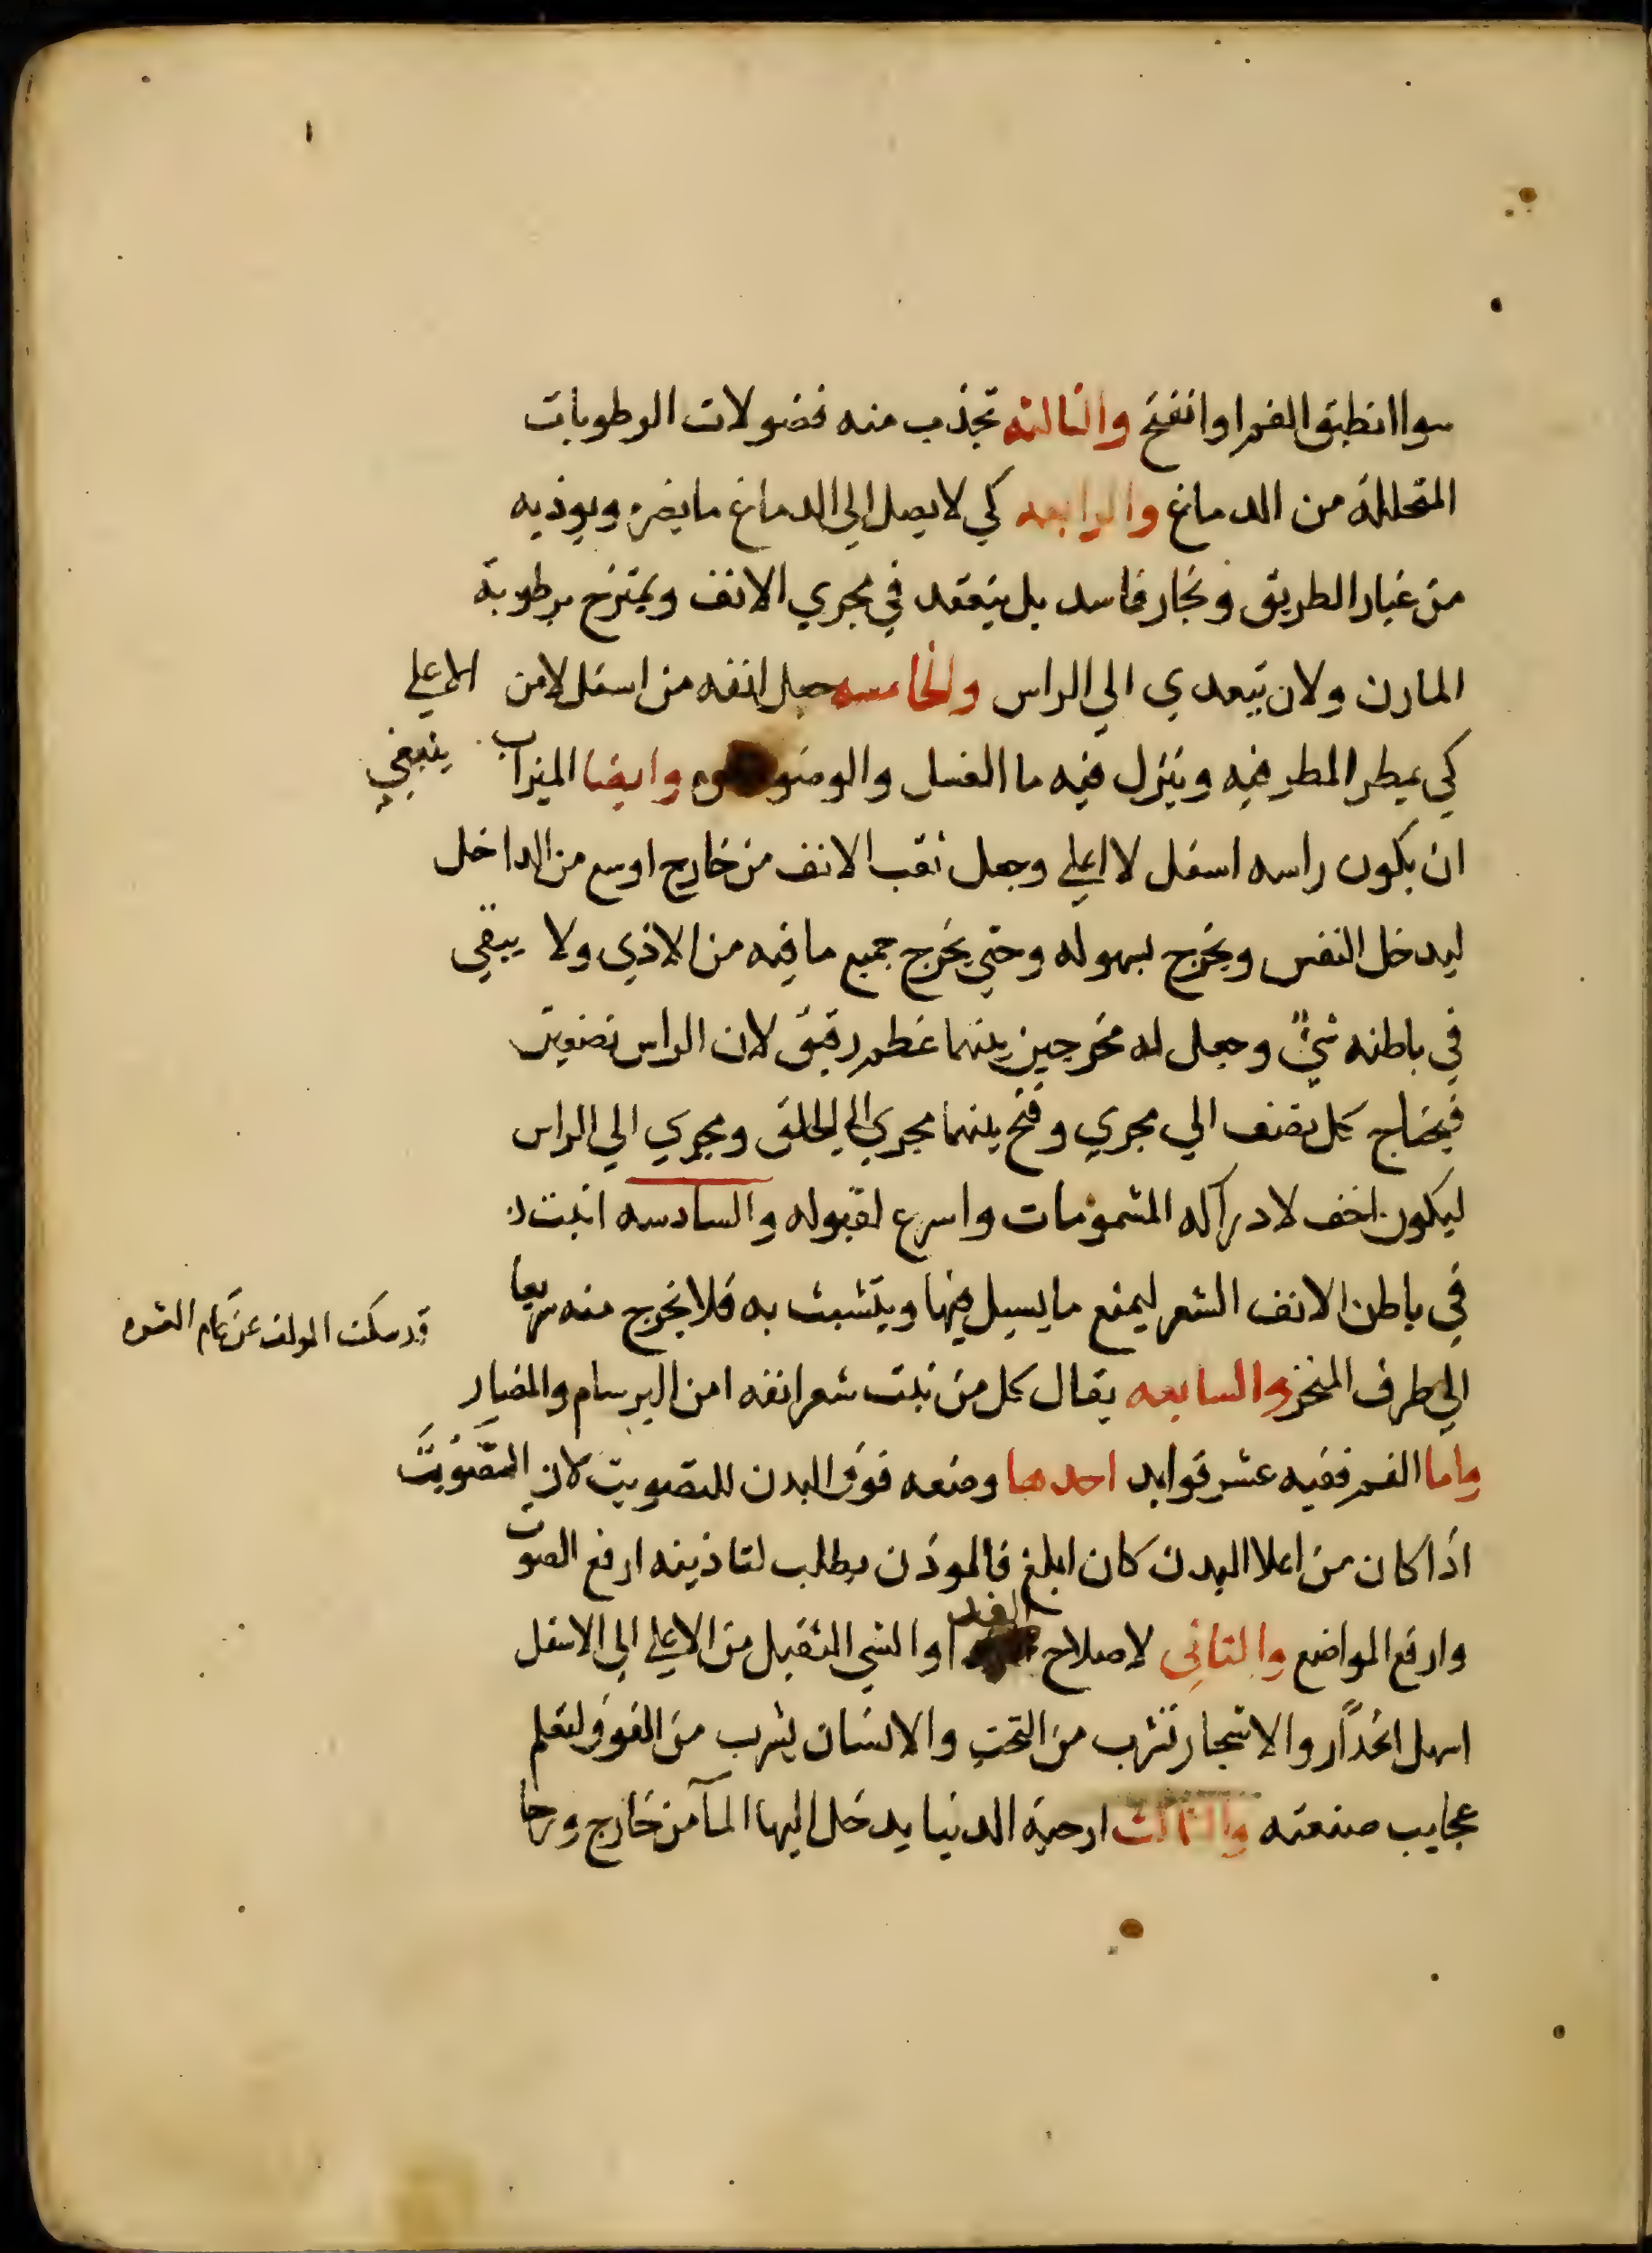 سوا انطبق الفم او انفتح والثالثه تجذب منه فضولات الرطوبات
المتحللة من الدماغ والرابعه كي لا يصل الي الدماغ ما يضره ويوذيه
من غبار الطريق وبخار فاسد بل ينعقد في مجري الانف ويمتزج برطوبة
المارن ولان يتعدي الي الراس والخامسه جعل انفه من اسفل لا من الاعلي
كي يمطر المطر فيه وينزل فيه ما الغسل والوضو وايضا الميزاب ينبغي
ان يكون راسه اسفل لا اعلي وجعل ثقب الانف من خارج اوسع من الداخل
ليدخل النفس ويخرج بسهوله وحتي يخرج جميع ما فيه من الاذي ولا يبقي
في باطنه شيء وجعل له مخرجين بينهما عظم رقيق لان الراس نصفين
فيحتاج كل نصف الي مجري وفتح بينهما مجري الي الحلق ومجري الي الراس
ليكون اخف لادراكه المشمومات واسرع لقبوله والسادسه انبت
في باطن الانف الشعر ليمنع ما يسيل فيها ويتشبث به فلا يخرج منه سريعا
قد سكت المولف عن تمام العشره
الي طرف المنخر والسابعه يقال كل من نبت شعر انفه امن البرسام والمضار
واما الفم ففيه عشر فوايد احدها وضعه فوق البدن للتصويت لان التصويت
اذا كان من اعلا البدن كان ابلغ فالموذن يطلب لتاذينه ارفع الصوت
وارفع المواضع والثاني لاصلاح الغدا والشي الثقيل من الاعلي الي الاسفل
اسهل انحدار والاشجار تشرب من التحت والانسان يشرب من الفوق لتعلم
عجايب صنعته والثالث ارحية الدنيا يدخل اليها المآ من خارج ورحا